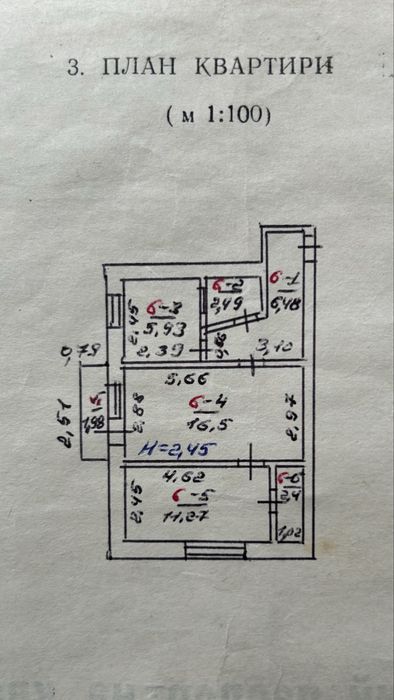 3. ПЛАН КВАРТИРИ
( м 1:100)
6-2
2,49
6-1
6,48
6-3
5,93
2,45
2,39
3,10
0,79
5,66
6-4
16,5
2,88
2,97
2,51
1,98
H=2,45
4,62
6-5
11,27
2,45
6-6
2,4
1,02